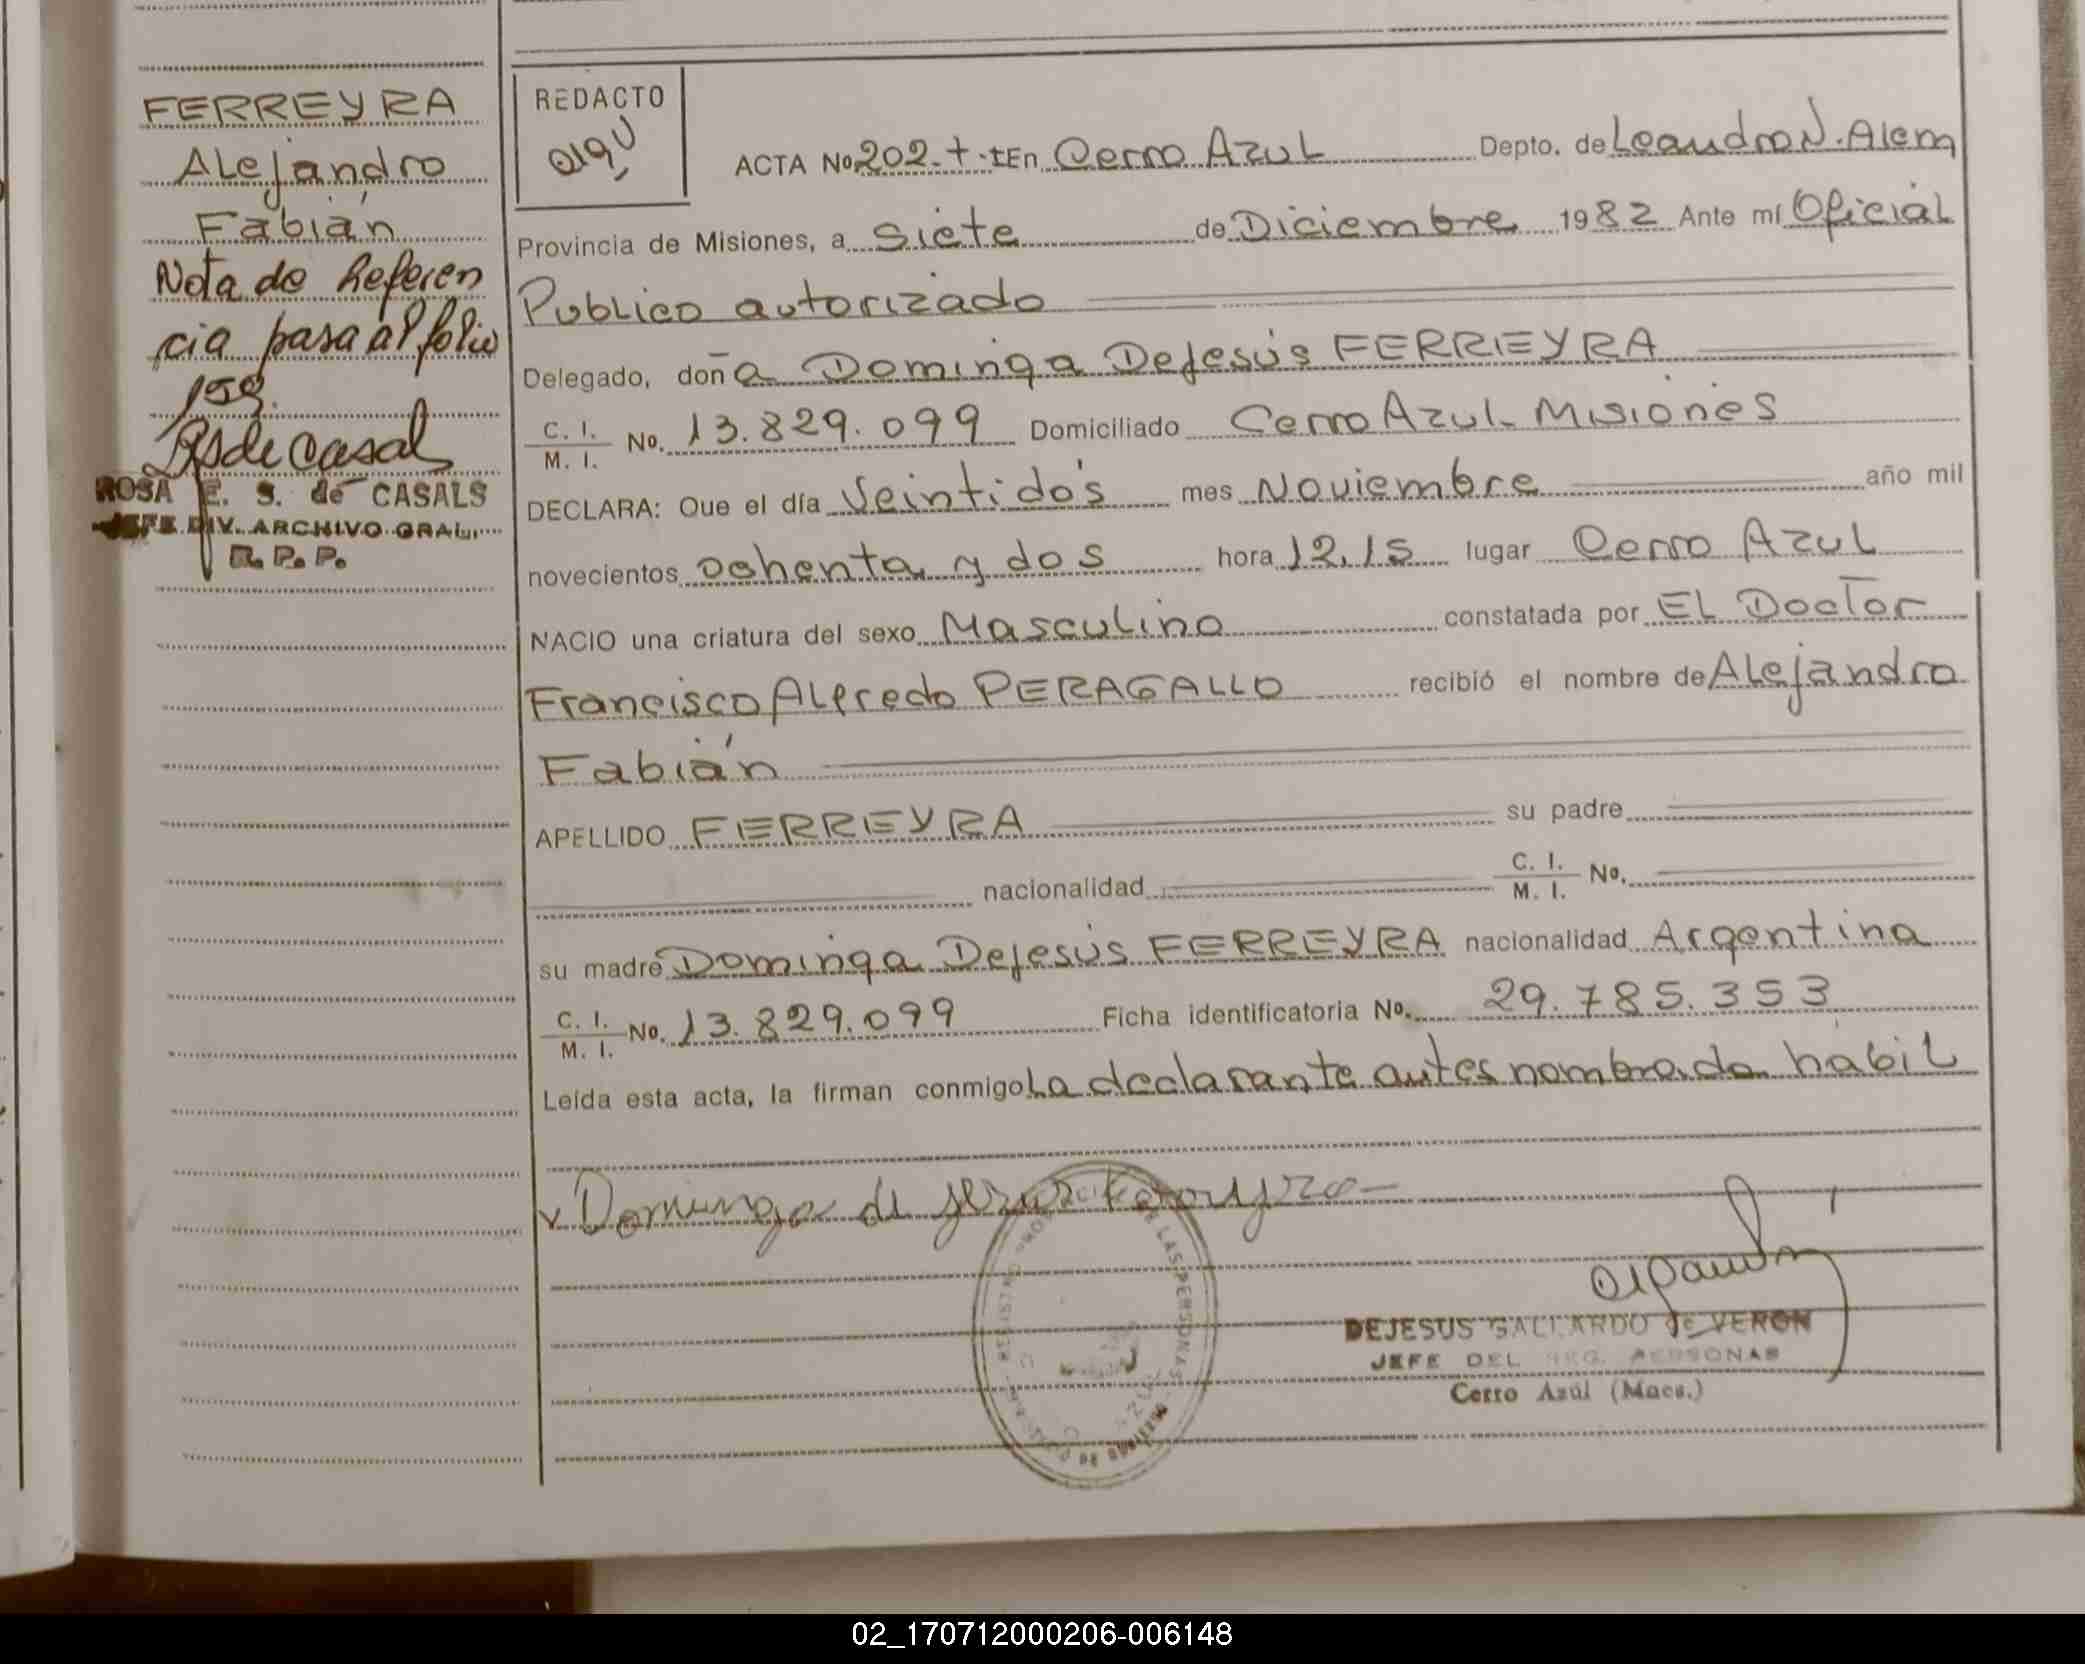 FERREYRA
Alejandro
Fabián
Nota de Referen
cia pasa al folio
158.
ROSA E. S. de CASALS
JEFE DIV. ARCHIVO GRAL.
R. P. P.
REDACTO
ACTA No 202. En Cerro Azul Depto. de Leandro N. Alem
Provincia de Misiones, a siete de Diciembre 1982 Ante mí Oficial
Publico autorizado
Delegado, doña Dominga Dejesús FERREYRA
C. I. / M. I. No. 13.829.099 Domiciliado Cerro Azul. Misiones
DECLARA: Que el día Veintidós mes Noviembre año mil
novecientos ochenta y dos hora 12,15 lugar Cerro Azul
NACIO una criatura del sexo Masculino constatada por El Doctor
Francisco Alfredo PERAGALLO recibió el nombre de Alejandro
Fabián
APELLIDO FERREYRA su padre
nacionalidad C. I. / M. I. No.
su madre Dominga Dejesús FERREYRA nacionalidad Argentina
C. I. / M. I. No. 13.829.099 Ficha identificatoria No. 29.785.353
Leída esta acta, la firman conmigo La declarante antes nombrada habil
Dominga de jesus Ferreyra
DEJESUS GALLARDO de VERON
JEFE DEL REG. PERSONAS
Cerro Azul (Mnes.)
LAS PERSONAS
02_170712000206-006148